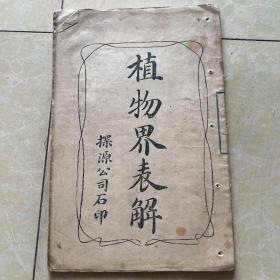 植物界表解
探源公司石印